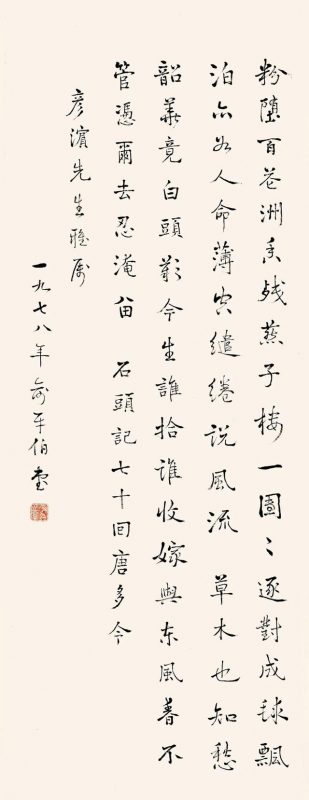 粉墮百花洲香残燕子樓一團〻逐對成毬飄
泊亦如人命薄空繾綣説風流 草木也知愁
韶華竟白頭歎今生誰拾誰收嫁與东風春不
管憑爾去忍淹留 石頭記七十回唐多令
彦濱先生雅屬
一九七八年俞平伯書